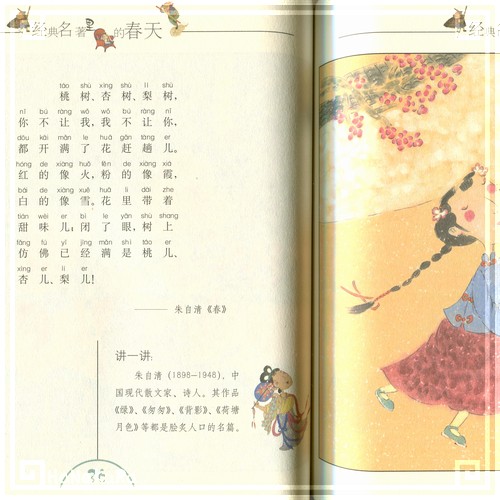 经典名著里的春天
táo shù xìng shù lí shù
桃树、杏树、梨树,
nǐ bú ràng wǒ wǒ bú ràng nǐ
你不让我,我不让你,
dōu kāi mǎn le huā gǎn tàng er
都开满了花赶趟儿。
hóng de xiàng huǒ fěn de xiàng xiá
红的像火,粉的像霞,
bái de xiàng xuě huā lǐ dài zhe
白的像雪。花里带着
tián wèi er bì le yǎn shù shang
甜味儿;闭了眼,树上
fǎng fú yǐ jīng mǎn shì táo er
仿佛已经满是桃儿、
xìng er lí er
杏儿、梨儿!
——朱自清《春》
讲一讲:
朱自清(1898—1948),中
国现代散文家、诗人。其作品
《绿》、《匆匆》、《背影》、《荷塘
月色》等都是脍炙人口的名篇。
经典